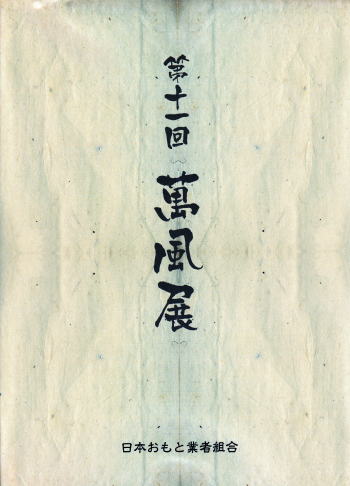 第十一回 萬風展
日本おもと業者組合